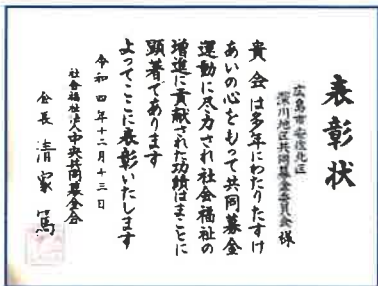 表彰状
広島市安佐北区
深川地区共同募金委員会 様
貴会は多年にわたりたすけ
あいの心をもって共同募金
運動に尽力され社会福祉の
増進に貢献された功績はまことに
顕著であります
よってここに表彰いたします
令和四年十二月十三日
社会福祉法人中央共同募金会
会長 清家篤